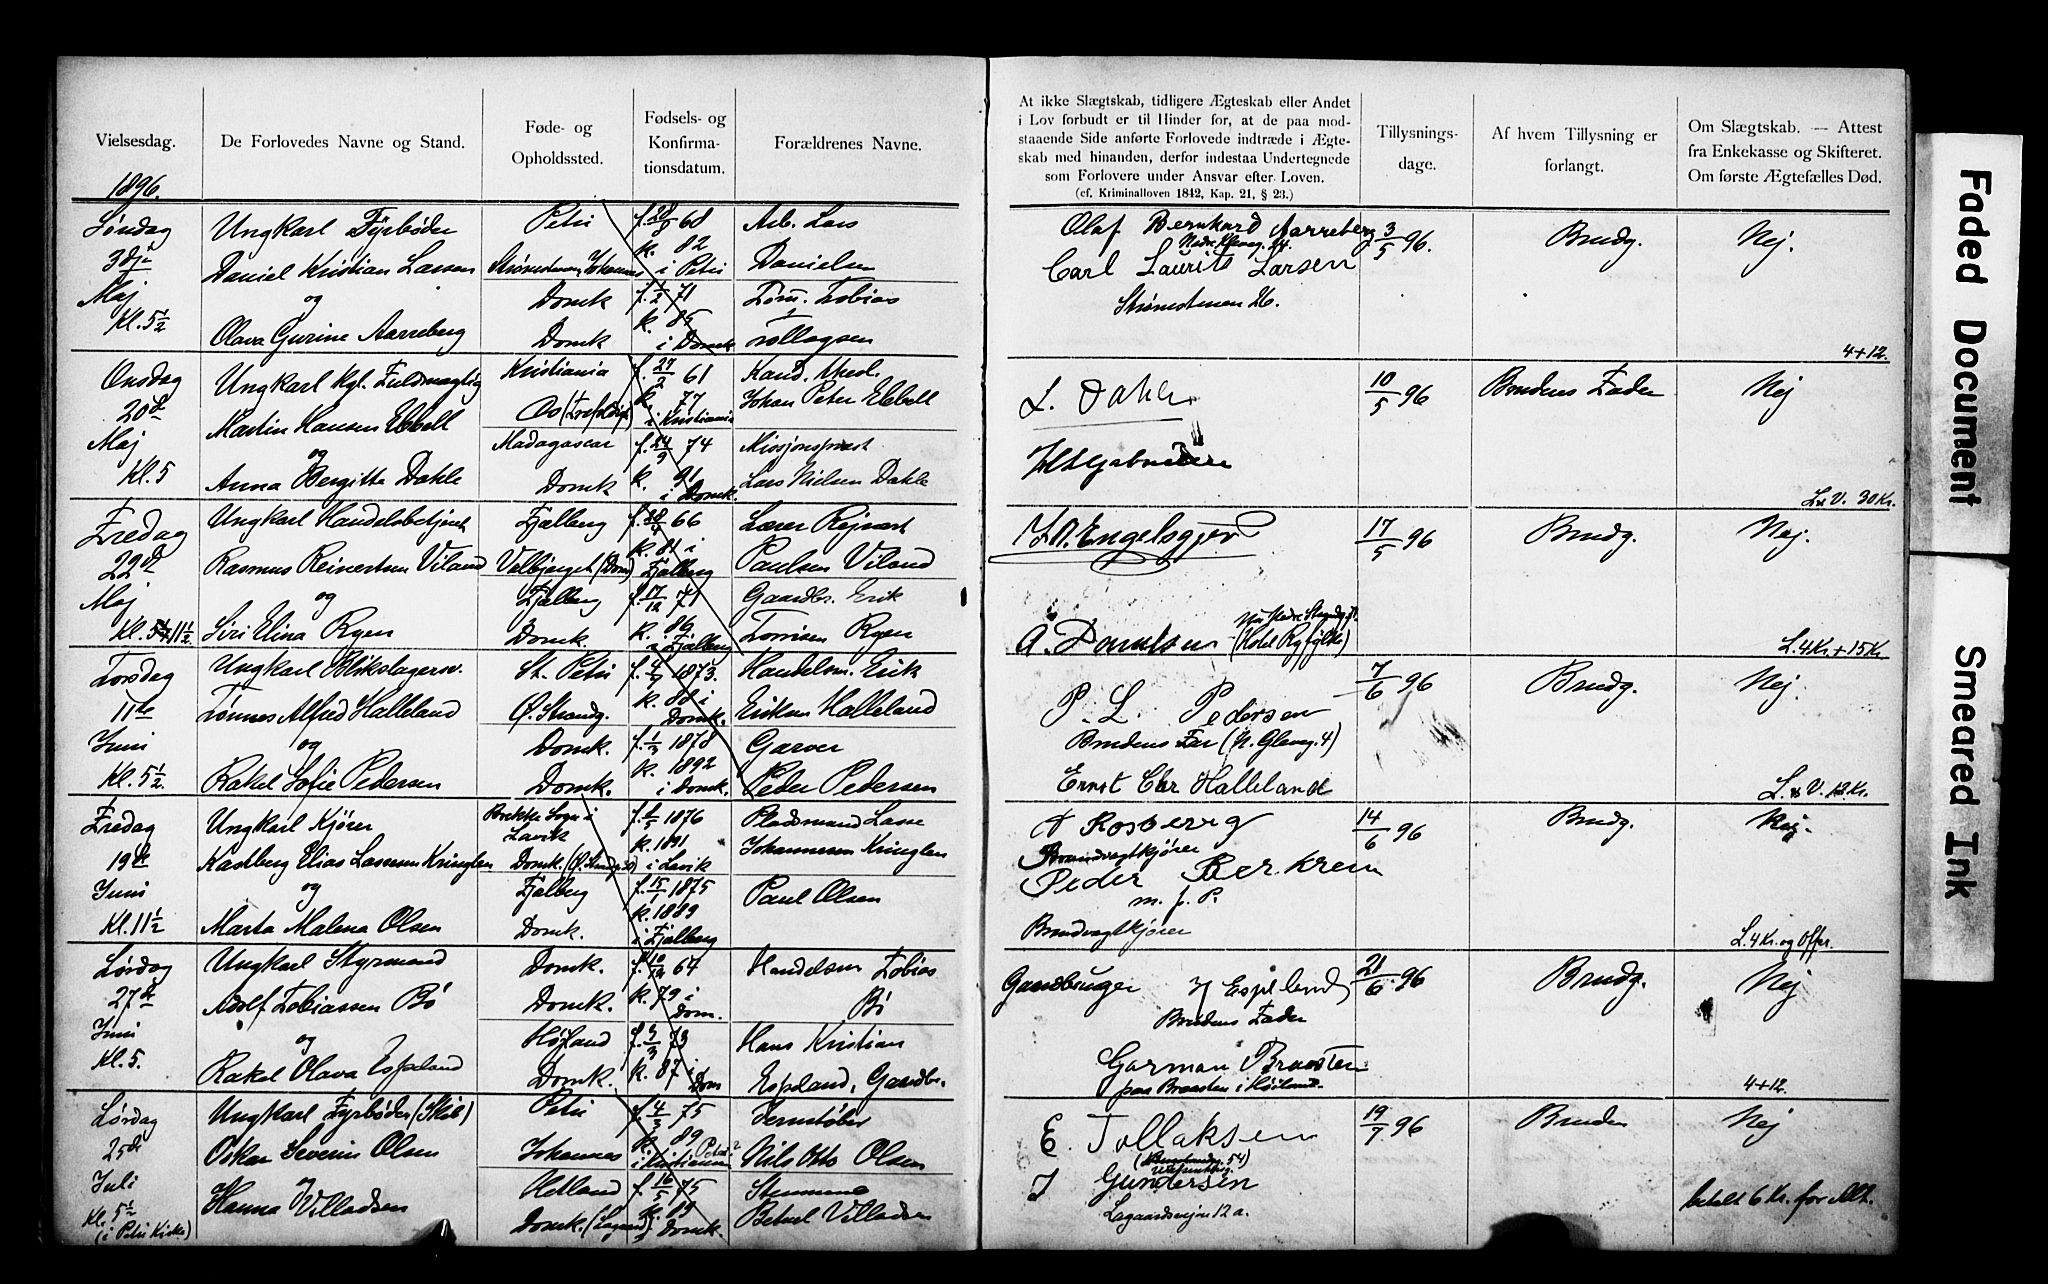 Vielsesdag.
De Forlovedes Navne og Stand.
Føde- og
Opholdssted.
Fødsels- og
Konfirma-
tionsdatum.
Forældrenes Navne.
At ikke Slægtskab, tidligere Ægteskab eller Andet
i Lov forbudt er til Hinder for, at de paa mod-
staaende Side anførte Forlovede indtræde i Ægte-
skab med hinanden, derfor indestaa Undertegnede
som Forlovere under Ansvar efter Loven.
(cf. Kriminalloven 1842, Kap. 21, § 23.)
Tillysnings-
dage.
Af hvem Tillysning er
forlangt.
Om Slægtskab. — Attest
fra Enkekasse og Skifteret.
Om første Ægtefælles Død.
1896.
Søndag
31te
Maj
Kl. 5½
Ungkarl Fyrbøder
Daniel Kristian Lassen
og
Olava Gurine Aarreberg
Petri
Johannes
Domk
Domk
f. 68
k. 82
i Petri
f. 1/2 71
k. 85
i Domk
Arb. Lars
Danielsen
Tøm. Tobias
Olaf Bernhard Aarreberg
Carl Laurits Larsen
26.
3/5 96.
Brudg.
Nej.
4+12.
Onsdag
20de
Maj
Kl. 5
Ungkarl Kgl. Fuldmægtig
Martin Hansen Ebbell
og
Anna Bergitte Dahle
Kristiania
Madagascar
Domk
f. 27/2 61
k. 77
i Kristiania
f. 24/9 74
k. 91
i Domk.
Kand. Med.
Johan Peter Ebbell
Missjonsprest
Lars Nielsen Dahle
L. Dahle
10/5 96
Brudens Fader
Nej
L. V. 30 Kr.
Fredag
22de
Maj
Kl. 11½
Ungkarl Handelsbetjent
Rasmus Reinertsen Viland
og
Siri Elina Ryen
Fjælberg
Fjælberg
Domk.
66
k. 81 i
Fjælberg
f. 17/12 71
k. 86
i Fjælberg
Lærer Rejnert
Paulsen Viland
Gaardbr. Erik
Torrisen Ryen
(Hotel Ryfylke)
17/5 96
Brudg.
Nej.
L. 4 Kr. + 15 Kr
Torsdag
11te
Juni
Kl. 5½
Ungkarl Blikslagersv.
Tønnes Alfred Halleland
og
Rakel Sofie Pedersen
St. Petri
Ø. Strandg.
Domk.
Domk.
1873.
k. 88 i
Domk.
f. 1/3 1878
k. 1892
i Domk.
Handelsm. Erik
Eriksen Halleland
Garver
Peder Pedersen
P. L. Pedersen
Brudens Far (N. Gleveg. 4)
Ernst Chr Halleland
7/6 96
Brudg.
Nej.
L. V. 12 Kr.
Fredag
19de
Juni
Kl. 11½
Ungkarl Kjører
Karlberg Elias Lassesen Kringlen
og
Marta Malena Olsen
Brekke Sogn i
Lavik
Domk.
Fjælberg
Domk.
1876
k. 1891
i Lavik
f. 15/1 1875
k. 1889
i Fjælberg
Pladsmand Lasse
Johannesen Kringlen
Paul Olsen
Rosberg
Brandvagtkjører
Peder Berkrem
m. f. P.
Brandvagtkjører
14/6 96
Brudg.
Nej.
L. 4 Kr. og Offer.
Lørdag
27de
Juni
Kl. 5.
Ungkarl Styrmand
Adolf Tobiassen Bø
og
Rakel Olava Espeland
Domk.
Domk.
Høiland
Domk.
f. 10/12 64
k. 79 i
Dom.
73
k. 87 i
Dom
Handelsm Tobias
Bø
Hans Kristian
Espeland, Gaardbr.
Gaardbruger Espeland
Brudens Fader
Garman Braasten
paa Braasten i Høiland.
21/6 96
Brudg.
Nej
4+12.
Lørdag
25de
Juli
Kl. 5½
(i Petri Kirke)
Ungkarl Fyrbøder (Skib)
Oskar Severin Olsen
og
Hanna Villadsen
Petri
Johannes
Hetland
Domk.
f. 4/3 75
k. 89
f. 16/5 75
k. 89
i Domk.
Jernstøber
Nils Otto Olsen
Stenmand
Betuel Villadsen
E. Tollaksen
J Gundersen
Lagaardsvejen 12 a.
19/7 96
Bruden
Nej
betalt 6 Kr. for Alt.
Faded Document
Smeared Ink